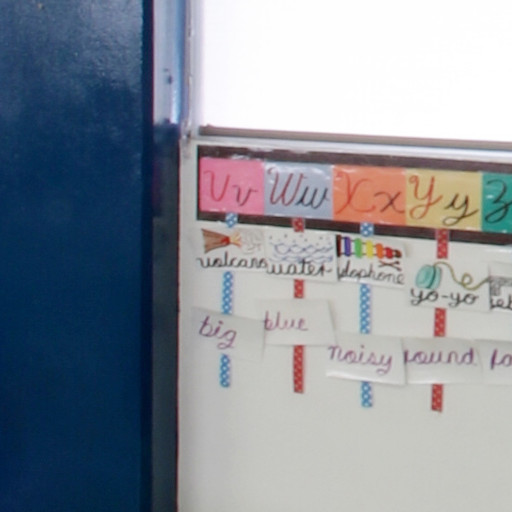 Vv Ww Xx Yy Z
volcano water xylophone yo-yo
big blue noisy round